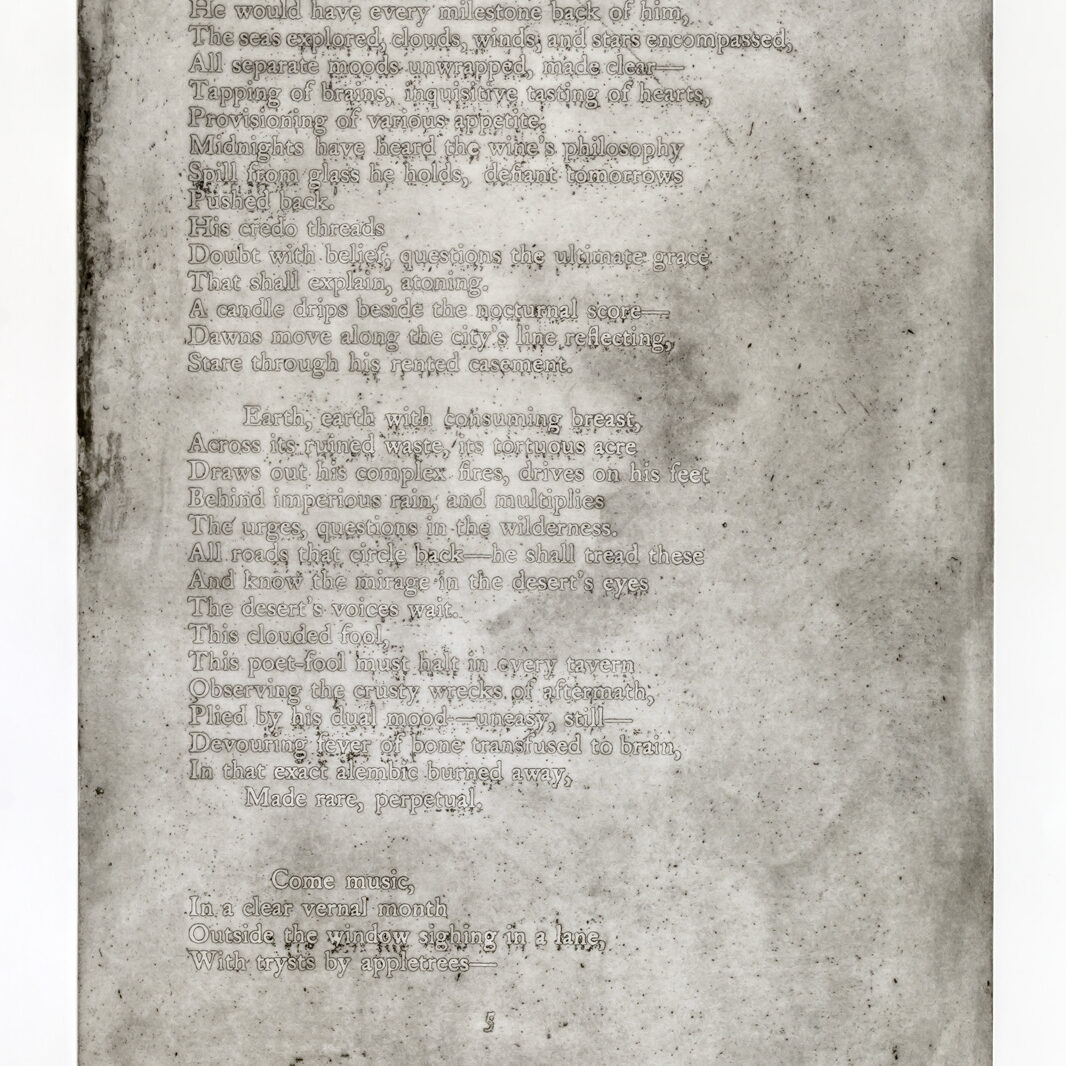 He would have every milestone back of him,
The seas explored, clouds, winds, and stars encompassed,
All separate moods unwrapped, made clear—
Tapping of brains, inquisitive tasting of hearts,
Provisioning of various appetite.
Midnights have heard the wine's philosophy
Spill from glass he holds, defiant tomorrows
Pushed back.
His credo threads
Doubt with belief, questions the ultimate grace
That shall explain, atoning.
A candle drips beside the nocturnal score—
Dawns move along the city's line reflecting,
Stare through his rented casement.
Earth, earth with consuming breast,
Across its ruined waste, its tortuous acre
Draws out his complex fires, drives on his feet
Behind imperious rain, and multiplies
The urges, questions in the wilderness.
All roads that circle back—he shall tread these
And know the mirage in the desert's eyes
The desert's voices wait.
This clouded fool,
This poet-fool must halt in every tavern
Observing the crusty wrecks of aftermath,
Plied by his dual mood—uneasy, still—
Devouring fever of bone transfused to brain,
In that exact alembic burned away,
Made rare, perpetual.
Come music,
In a clear vernal month
Outside the window sighing in a lane,
With trysts by appletrees—
5